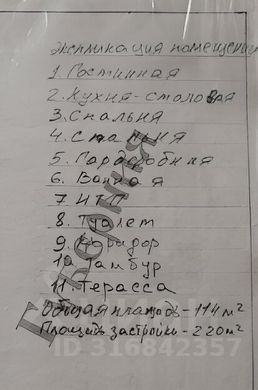 Экспликация помещений
1. Гостинная
2. Кухня-столовая
3. Спальня
4. Спальня
5. Гардеробная
6. Ванная
7 ИТП
8. Туалет
9. Коридор
10 Тамбур
11. Терасса
Общая площадь - 114 м²
Площадь застройки - 220 м²
ID 316842357